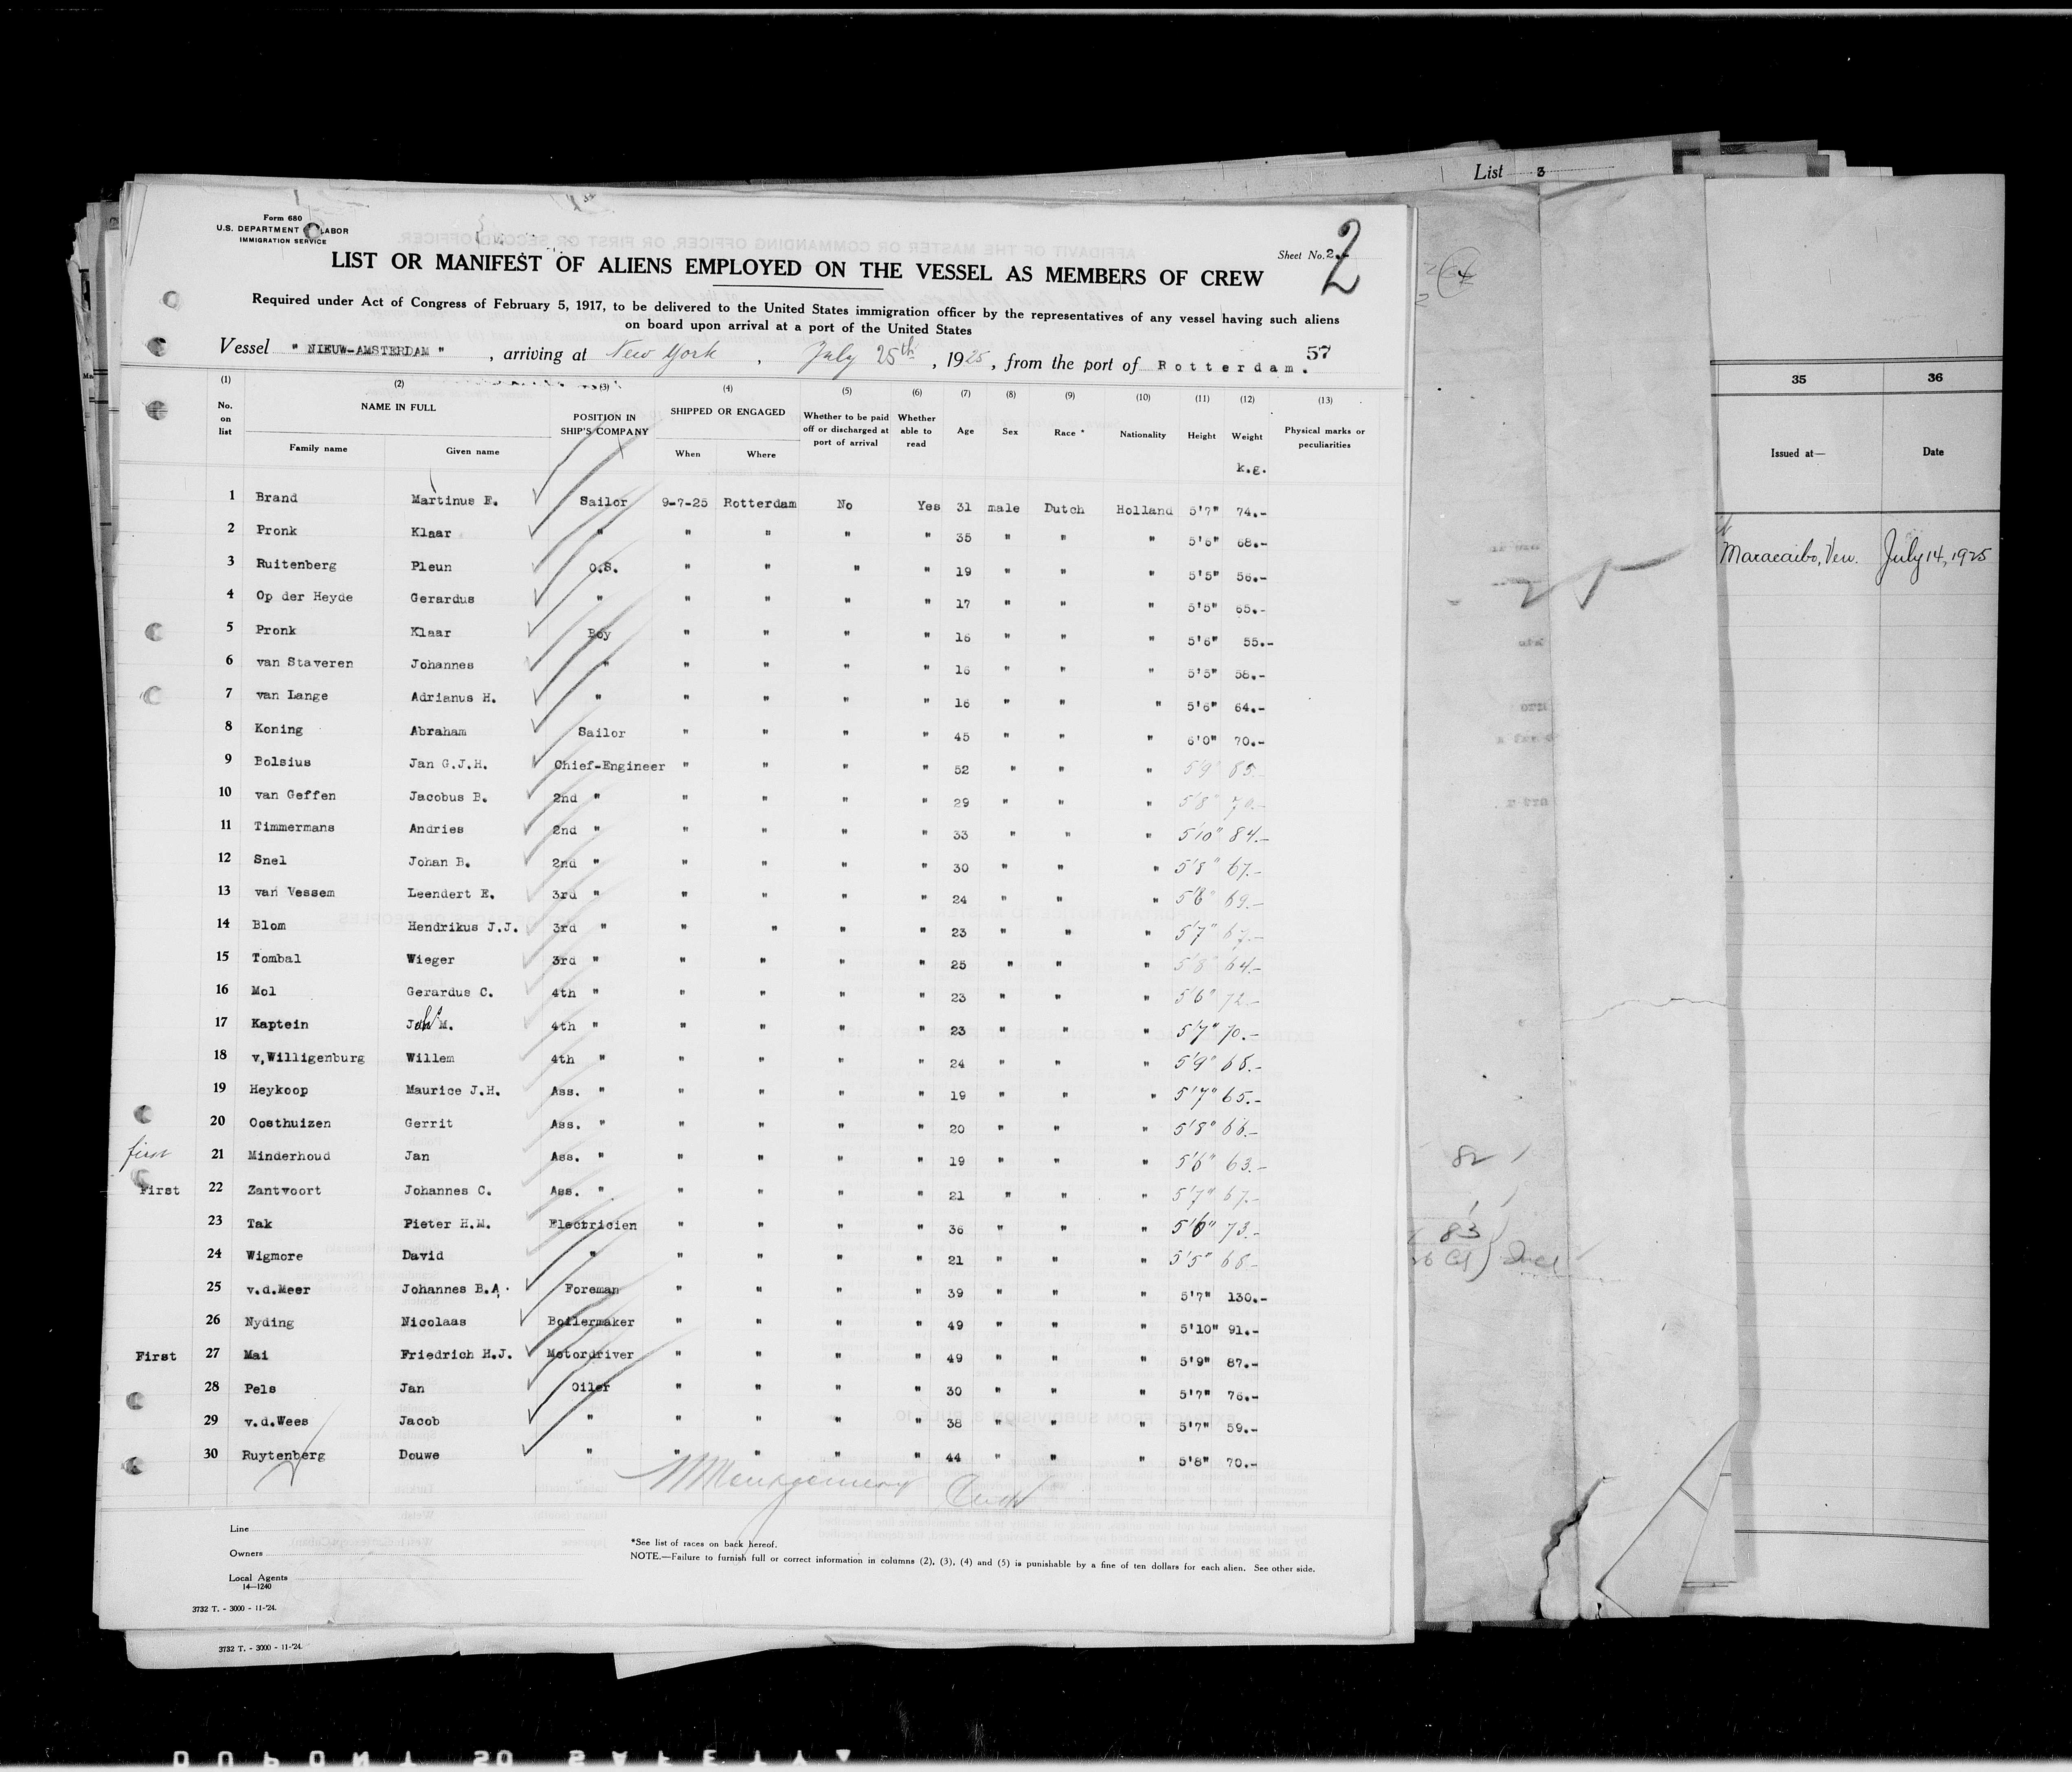 List 3
Form 680
U.S. DEPARTMENT LABOR
IMMIGRATION SERVICE
Sheet No. 2.-
2
LIST OR MANIFEST OF ALIENS EMPLOYED ON THE VESSEL AS MEMBERS OF CREW
Required under Act of Congress of February 5, 1917, to be delivered to the United States immigration officer by the representatives of any vessel having such aliens
on board upon arrival at a port of the United States
57
Vessel " NIEUW-AMSTERDAM " , arriving at New York , July 25th , 1925 , from the port of Rotterdam.
(1) (2) (3) (4) (5) (6) (7) (8) (9) (10) (11) (12) (13)
No. on list NAME IN FULL Family name Given name POSITION IN SHIP'S COMPANY SHIPPED OR ENGAGED When Where Whether to be paid off or discharged at port of arrival Whether able to read Age Sex Race * Nationality Height Weight k.g. Physical marks or peculiarities
1 Brand Martinus F. Sailor 9-7-25 Rotterdam No Yes 31 male Dutch Holland 5'7" 74.-
2 Pronk Klaar " " " " " 35 " " " 5'6" 68.-
3 Ruitenberg Pleun O.S. " " " " 19 " " " 5'5" 56.-
4 Op der Heyde Gerardus " " " " " 17 " " " 5'5" 65.-
5 Pronk Klaar Boy " " " " 16 " " " 5'6" 55.-
6 van Staveren Johannes " " " " " 16 " " " 5'5" 58.-
7 van Lange Adrianus H. " " " " " 16 " " " 5'6" 64.-
8 Koning Abraham Sailor " " " " 45 " " " 6'0" 70.-
9 Bolsius Jan G.J.H. Chief-Engineer " " " " 52 " " " 5'9" 85.-
10 van Geffen Jacobus B. 2nd " " " " " 29 " " " 5'8" 70.-
11 Timmermans Andries 2nd " " " " " 33 " " " 5'10" 84.-
12 Snel Johan B. 2nd " " " " " 30 " " " 5'8" 67.-
13 van Vessem Leendert E. 3rd " " " " " 24 " " " 5'8" 69.-
14 Blom Hendrikus J.J. 3rd " " " " " 23 " " " 5'7" 67.-
15 Tombal Wieger 3rd " " " " " 25 " " " 5'8" 64.-
16 Mol Gerardus C. 4th " " " " " 23 " " " 5'6" 72.-
17 Kaptein M. 4th " " " " " 23 " " " 5'7" 70.-
18 v,Willigenburg Willem 4th " " " " " 24 " " " 5'9" 68.-
19 Heykoop Maurice J.H. Ass. " " " " " 19 " " " 5'7" 65.-
20 Oosthuizen Gerrit Ass. " " " " " 20 " " " 5'8" 66.-
first 21 Minderhoud Jan Ass. " " " " " 19 " " " 5'6" 63.-
First 22 Zantvoort Johannes C. Ass. " " " " " 21 " " " 5'7" 67.-
23 Tak Pieter H.M. Electricien " " " " 36 " " " 5'6" 73.-
24 Wigmore David " " " " " 21 " " " 5'5" 68.-
25 v.d.Meer Johannes B.A. Foreman " " " " 39 " " " 5'7" 130.-
26 Nyding Nicolaas Boilermaker " " " " 49 " " " 5'10" 91.-
First 27 Mai Friedrich H.J. Motordriver " " " " 49 " " " 5'9" 87.-
28 Pels Jan Oiler " " " " 30 " " " 5'7" 76.-
29 v.d.Wees Jacob " " " " " 38 " " " 5'7" 59.-
30 Ruytenberg Douwe " " " " " 44 " " " 5'8" 70.-
Line
Owners
Local Agents
14—1240
*See list of races on back hereof.
NOTE.—Failure to furnish full or correct information in columns (2), (3), (4) and (5) is punishable by a fine of ten dollars for each alien. See other side.
3732 T. - 3000 - 11-'24.
3732 T. - 3000 - 11-'24.
82
83
35 36
Issued at— Date
Maracaibo, Ven. July 14, 1925